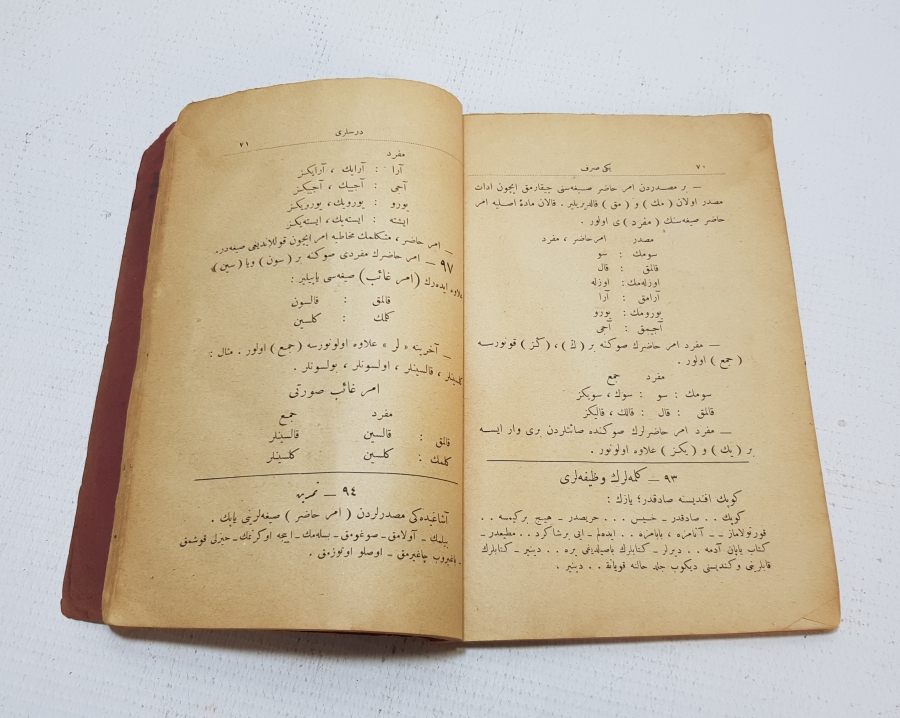 ٧٠
يكى صرف
— بر مصدردن امر حاضر صيغه‌سنى چيقارمق ايچون ادات
مصدر اولان ( مك ) و ( مق ) قالديريلير . قالان مادهٔ اصليه امر
حاضر صيغه‌سنك ( مفرد ) ى اولور .
مصدر امر حاضر ، مفرد
سومك : سو
قالمق : قال
اوزله‌مك : اوزله
آرامق : آرا
يورومك : يورو
آجيمق : آجى
— مفرد امر حاضرك صوكنه بر ( ك ) ، ( كز ) قونورسه
( جمع ) اولور .
مفرد جمع
سومك : سو : سوك ، سويكز
قالمق : قال : قالك ، قاليكز
— مفرد امر حاضرلرك صوكنده صائتلردن برى وار ايسه
بر ( يك ) و ( يكز ) علاوه اولونور .
٩٣ — كلمه‌لرك وظيفه‌لرى
كوپك افنديسنه صادقدر ؛ يازك :
كوپك . . صادقدر ـ خسيس . . . حريصدر ـ هيچ بركيمسه . .
قورتولاماز ــ آنامزه ، بابامزه . . ايده‌لم ـ ايى برشاكرد . . مطيعدر ـ
كتاب ياپان آدمه . . ديرلر ـ كتابلرك باصيلديغى يره . . دينير ـ كتابلرك
قابلرينى وكنديسنى ديكوب جلد حالنه قويانه . . دينير .
درسلرى
٧١
مفرد
آرا : آرايك ، آرايكز
آجى : آجييك ، آجييكز
يورو : يورويك ، يورويكز
ايسته : ايسته‌يك ، ايسته‌يكز
— امر حاضر ، متكلمك مخاطبه امر ايچون قوللانديغى صيغه‌در.
٩٧ — امر حاضرك مفردى صوكنه بر ( سون ) ويا ( سين )
علاوه ايده‌رك ( امر غائب ) صيغه‌سى ياپيلير :
قالمق : قالسون
كلمك : كلسين
— آخرينه « لر » علاوه اولونورسه ( جمع ) اولور . مثال :
كلسينلر ، قالسينلر ، اولسونلر ، بولسونلر .
امر غائب صورتى
مفرد جمع
قالمق : قالسين قالسينلر
كلمك : كلسين كلسينلر
٩٤ — تمرين
آشاغيده‌كى مصدرلردن ( امر حاضر ) صيغه‌لرينى ياپك .
بيلمك ـ آولامق ـ صوغومق ـ بسله‌مك ـ اييجه اوكرنمك ـ حيزلى قوشمق
ـ باغيروب چاغيرمق ـ اوصلو اوتورمق .